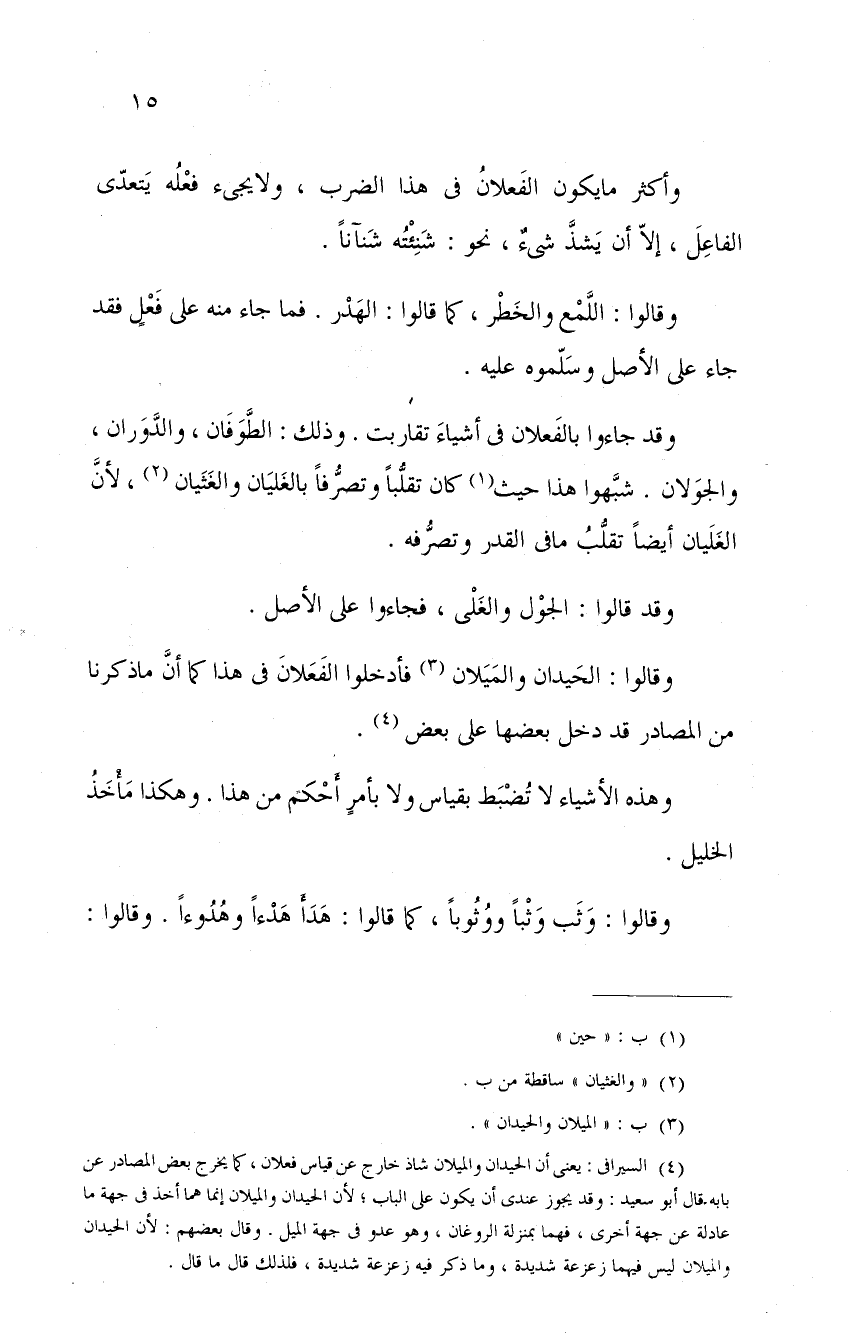 ١٥
وأكثر مايكون الفَعلانُ فى هذا الضرب ، ولايجىء فعْلُه يَتعدّى
الفاعِلَ ، إلاّ أن يَشذَّ شىءٌ ، نحو : شَنِئْتُه شَنآناً .
وقالوا : اللَّمْع والخَطْر ، كما قالوا : الهَدْر . فما جاء منه على فَعْلٍ فقد
جاء على الأصل وسَلّموه عليه .
وقد جاءوا بالفَعلان فى أشياءَ تقاربت . وذلك : الطَّوَفَان ، والدَّوَران ،
والجوَلان . شبَّهوا هذا حيث(١) كان تقلُّباً وتصرُّفاً بالغَليَان والغَثَيان (٢) ، لأنَّ
الغَلَيان أيضاً تقلُّبُ مافى القدر وتصرُّفه .
وقد قالوا : الجوْل والغَلْى ، فجاءوا على الأصل .
وقالوا : الحَيدان والمَيَلان (٣) فأدخلوا الفَعَلانَ فى هذا كما أنَّ ماذكرنا
من المصادر قد دخل بعضها على بعض (٤) .
وهذه الأشياء لا تُضْبَط بقياس ولا بأمرٍ أَحْكَمَ من هذا . وهكذا مَأْخَذُ
الخليل .
وقالوا : وَثَب وَثْباً ووُثُوباً ، كما قالوا : هَدَأَ هَدْءاً وهُدُوءاً . وقالوا :
(١) ب : « حين »
(٢) « والغثيان » ساقطة من ب .
(٣) ب : « الميلان والحيدان » .
(٤) السيرافى : يعنى أن الحيدان والميلان شاذ خارج عن قياس فعلان ، كما يخرج بعض المصادر عن
بابه.قال أبو سعيد : وقد يجوز عندى أن يكون على الباب ؛ لأن الحيدان والميلان إنما هما أخذ فى جهة ما
عادلة عن جهة أخرى ، فهما بمنزلة الروغان ، وهو عدو فى جهة الميل . وقال بعضهم : لأن الحيدان
والميلان ليس فيهما زعزعة شديدة ، وما ذكر فيه زعزعة شديدة ، فلذلك قال ما قال .